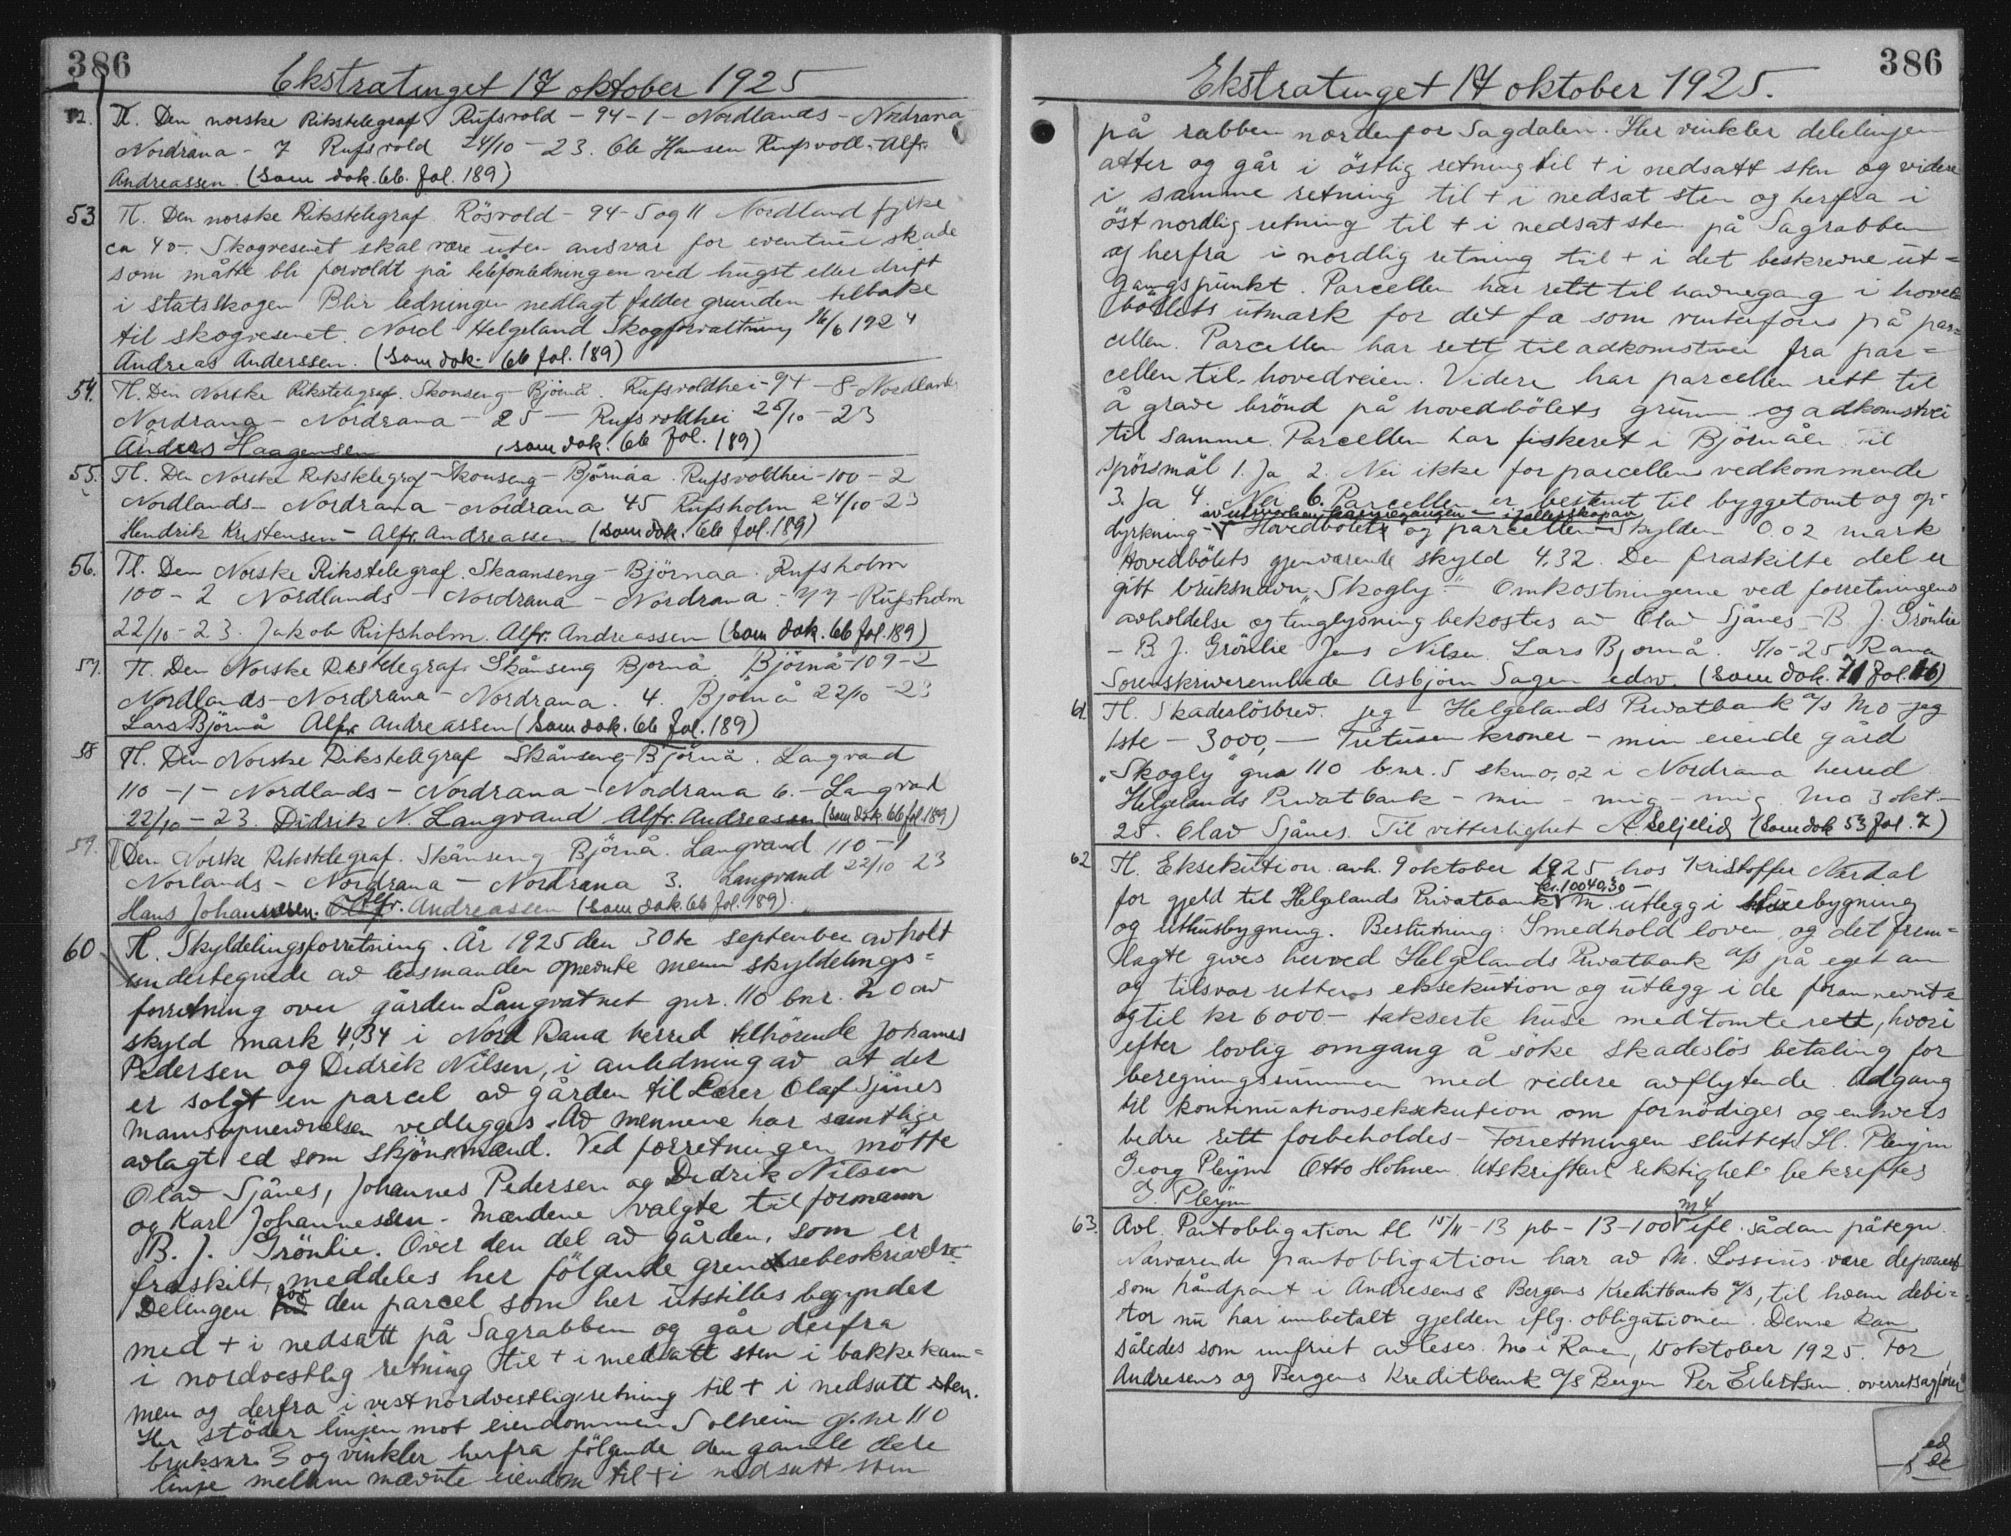 386
Ekstratinget 17 oktober 1925
52. Tl. Den norske Rikstelegraf Rufsvold - 94 - 1 - Nordlands - Nordrana
Nordrana - 7 Rufsvold 24/10 - 23. Ole Hansen Rufsvoll. Alfr.
Andreassen. (Som dok. 66. fol. 189)
53 Tl. Den norske Rikstelegraf. Rösvold - 94 - 5 og 11 Nordland fylke
ca 40 - Skogvesenet skal være uten ansvar for eventuel skade
som måtte bli forvoldt på telefonledningen ved hugst eller drift
i statsskogen Blir ledningen nedlagt falder grunden tilbake
til skogvesenet. Nord Helgeland Skogforvaltning 16/6 1924
Andreas Anderssen. (Som dok. 66 fol. 189)
54. Tl. Den Norske Rikstelegraf. Skonseng - Bjørnå. Rufsvoldhei - 94 - 8 Nordlands
Nordrana - Nordrana - 25 - Rufsvoldhei 25/10 - 23
Anders Haagensen (som dok. 66 fol. 189)
55. Tl. Den Norske Rikstelegraf - Skonseng - Bjørnåa. Rufsvoldhei - 100 - 2
Nordlands - Nordrana - Nordrana 45 Rufsholm 24/10 - 23
Hendrik Kristensen - Alfr. Andreassen (som dok. 66 fol. 189)
56. Tl. Den Norske Rikstelegraf. Skaanseng - Björnaa. Rufsholm
100 - 2 Nordlands - Nordrana - Nordrana - 44 - Rufsholm
22/10 - 23. Jakob Rufsholm. Alfr. Andreassen (Som dok. 66 fol. 189)
57. Tl. Den Norske Rikstelegraf. Skånseng Bjornå Björnå - 109 - 2
Nordlands - Nordrana - Nordrana. 4. Bjørnå 22/10 - 23
Lars Björnå Alfr. Andreassen (Som dok. 66 fol. 189)
58 Tl. Den Norske Rikstelegraf Skånseng - Björnå. Langvand
110 - 1 - Nordlands - Nordrana - Nordrana 6. - Langvad
22/10 - 23. Didrik N. Langvand Alfr. Andreassen (Som dok. 66 fol. 189)
59. Tl Den Norske Rikstelegraf. Skånseng Björnå. Langvand 110 - 1
Norlands - Nordrana - Nordrana 3. Langvand 22/10 23
Hans Johannesen. Alfr. Andreassen (Som dok. 66 fol. 189).
60 Tl. Skyldelingsforretning. År 1925 den 30te september avholt
undertegnede av lensmanden opnevnte menn skyldelings=
forretning over gården Langvatnet gnr. 110 bnr. 2 av
skyld mark 4,34 i Nord Rana herred tilhörende Johannes
Pedersen og Didrik Nilsen, i anledning av at der
er solgt en parcel av gården til Lærer Olaf Sjånes
Mannsopnevnelsen vedlegges. Av mennene har samtlige
avlagt ed som skjönsmænd. Ved forretningen mötte
Olav Sjånes, Johannes Pedersen og Didrik Nilsen
og Karl Johannessen. Mændene valgte til formann
B. J. Grönlie. Over den del av gården, som er
fraskilt, meddeles her fölgende grensebeskrivelse
Delingen for den parcel som her utstilles begynder
med + i nedsatt på Sagrabben og går derfra
i nordvestlig retning til + i nedsatt sten i bakkekam=
men og derfra i vestnordvestlig retning til + i nedsatt sten.
Her stöder linjen mot eiendommen Solheim g.nr 110
bruksnr. 3 og vinkler herfra fölgende den gamle dele
linje mellem nævnte eiendom til + i nedsatt sten
386
Ekstratinget 17 oktober 1925.
på rabben nordenfor Sagdalen. Her vinkler delelinjen
atter og går i östlig retning til + i nedsatt sten og videre
i samme retning til + i nedsat sten og herfra i
öst nordlig retning til + i nedsat sten på Sagrabben
og herfra i nordlig retning til + i det beskrevne ut=
gangspunkt. Parcellen har rett til havnegang i hoved
bölets utmark for det fæ som vinterfores på par=
cellen. Parcellen har rett til adkomstvei fra par=
cellen til hovedveien. Videre har parcellen rett til
å grave brönd på hovedbölets grunn og adkomstvei
til samme. Parcellen har fiskeret i Björnåen. Til
spörsmål 1. Ja 2. Nei ikke for parcellens vedkommende
3. Ja 4. Nei 6. Parcellen er bestemt til byggetomt og op-
av utmarken havnegangen - i fellesskap av
dyrkning - Hovedbölet og parcellen - Skylden 0.02 mark
Hovedbölets gjenværende skyld 4,32. Den fraskilte del er
gitt bruksnavn "Skogly" - Omkostningerne ved forretningens
avholdelse og tinglysning bekostes av Olav Sjånes - B. J. Grönlie
- B. J. Grönlie Jens Nilsen. Lars Bjornå. 5/10 - 25 Rana
Sorenskriverembede Asbjörn Sagen edsv. (Som dok. 71 fol. 16)
61 Tl. Skadeslösbrev. jeg - Helgelands Privatbank A/s Mo - jeg
1ste - 3000,- Tretusen kroner - min eiende gård
"Skogly" gnr 110 bnr. 5 skm 0,02 i Nordrana herred
Helgelands Privatbank - min - mig - mig Mo 3 okt -
25. Olav Sjånes. Til vitterlighet A Seljelid (Som dok 53 fol. 7)
62 Tl. Eksekution avh. 9 oktober 1925 hos Kristoffer Nerdal
for gjeld til Helgelands Privatbank kr. 10040,30 m. utlegg i huebygning
og uthusbygning. Beslutning: I medhold loven og det frem=
lagte gives herved Helgelands Privatbank A/s på eget an
og tilsvar rettens eksekution og utlegg i de foran nevnte
og til kr 6000 - takserte huse med tomterett, hvori
efter lovlig omgang å söke skadeslös betaling for
beregningssummen med videre avflytende. Adgang
til kontinuationseksekution om fornödiges og enhvers
bedre rett forbeholdes - Forrettningen sluttet. H. Pleym
Georg Pleym Otto Holmen. Utskriftens riktighet bekreftes
G. Pleym
63. Avl. Pantobligation tl. 15/11 - 13 pb - 13 - 100 m 4 ifl. sådan påtegn.
Nærværende pantobligation har av M. Lossius være deponert
som håndpant i Andresens & Bergens Kreditbank A/s, til hvem debi=
tor nu har innbetalt gjelden iflg. obligationen. Denne kan
således som innfriet avleses. Mo i Ranen, 15 oktober 1925. For
Andresens og Bergens Kreditbank A/s Bergen Per Eilertsen overretssagförer